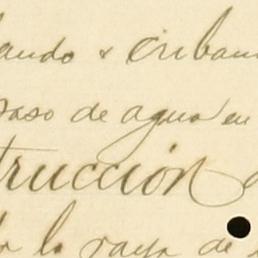 ando & cribam
paso de agua en
trucción
la raya de